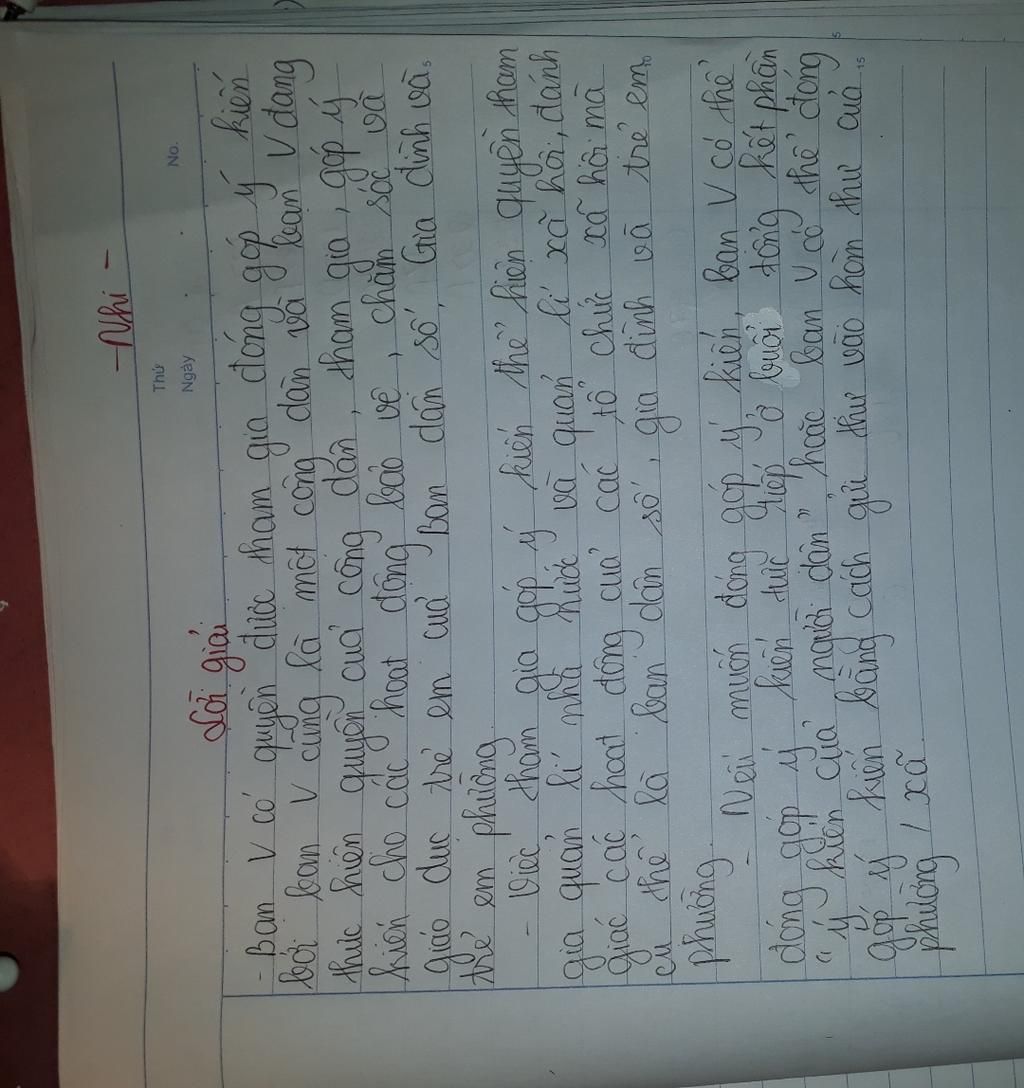 -Nhi-
Thứ
Ngày
No.
Lời giải
- Bạn V có quyền được tham gia đóng góp ý kiến
bởi bạn V cũng là một công dân và bạn V đang
thực hiện quyền của công dân, tham gia, góp ý
kiến cho các hoạt động bảo vệ, chăm sóc và
giáo dục trẻ em của Ban dân số, Gia đình và
trẻ em phường
- Việc tham gia góp ý kiến thể hiện quyền tham
gia quản lí nhà nước và quản lí xã hội, đánh
giác các hoạt động của các tổ chức xã hội mà
cụ thể là ban dân số, gia đình và trẻ em
phường.
- Nếu muốn đóng góp ý kiến, bạn V có thể
đóng góp ý kiến trực tiếp ở buổi tổng kết phần
"ý kiến của người dân" hoặc bạn V có thể đóng
góp ý kiến bằng cách gửi thư vào hòm thư của
phường / xã.
5
10
15
5